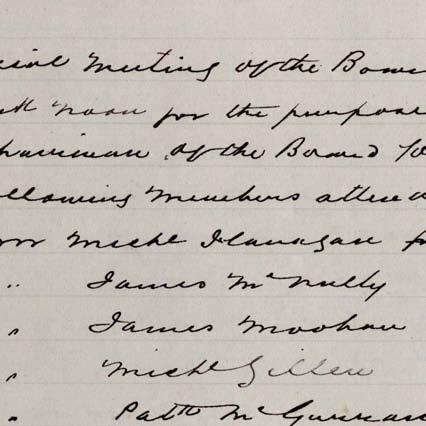 ecial Meeting of the Boar
at noon for the purpose
hairman of the Board fo
ollowing Members atten
Michl Flanagan
" James McNulty
" James Moohan
" Michl Gillen
" Patk McGurran